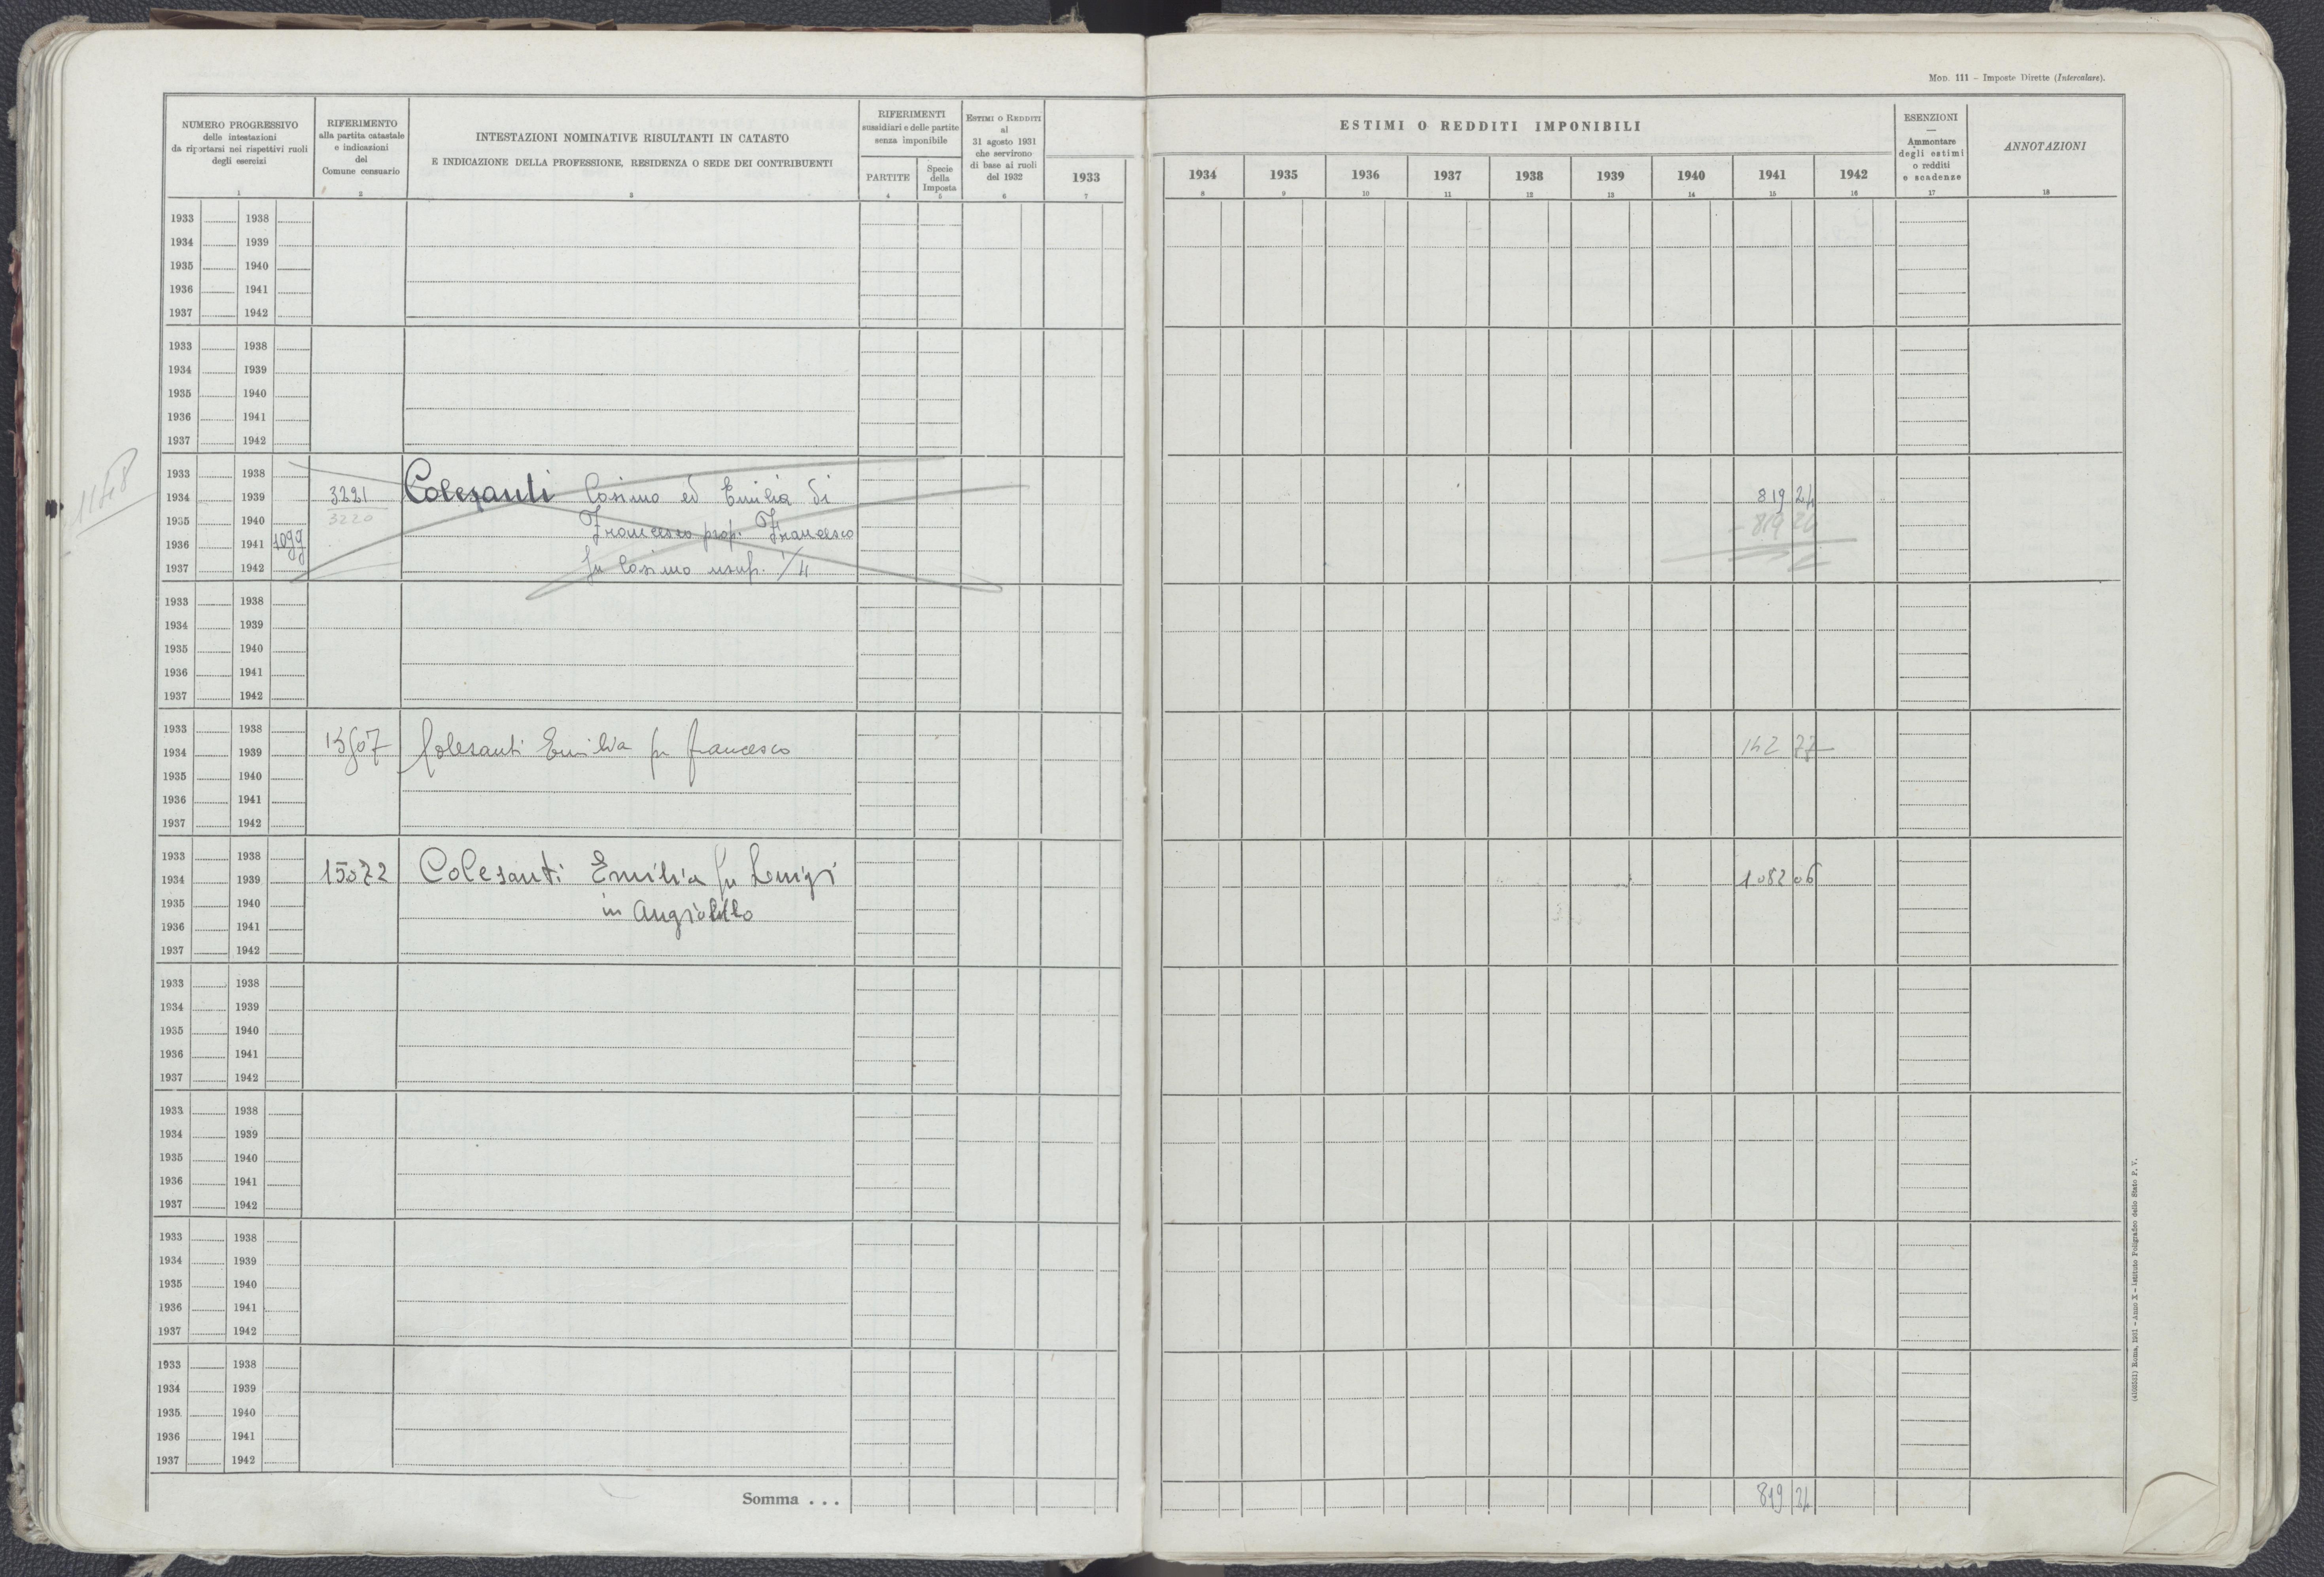 MOD. 111 - Imposte Dirette (Intercalare).
NUMERO PROGRESSIVO
delle intestazioni
da riportarsi nei rispettivi ruoli
degli esercizi
1
RIFERIMENTO
alla partita catastale
e indicazioni
del
Comune censuario
2
INTESTAZIONI NOMINATIVE RISULTANTI IN CATASTO
E INDICAZIONE DELLA PROFESSIONE, RESIDENZA O SEDE DEI CONTRIBUENTI
3
RIFERIMENTI
sussidiari e delle partite
senza imponibile
PARTITE
4
Specie
della
Imposta
5
ESTIMI O REDDITI
al
31 agosto 1931
che servirono
di base ai ruoli
del 1932
6
1933
7
ESTIMI O REDDITI IMPONIBILI
1934 1935 1936 1937 1938 1939 1940 1941 1942
8 9 10 11 12 13 14 15 16
ESENZIONI
—
Ammontare
degli estimi
o redditi
e scadenze
17
ANNOTAZIONI
18
1933 1938
1934 1939
1935 1940
1936 1941
1937 1942
1933 1938
1934 1939
1935 1940
1936 1941
1937 1942
1933 1938
1934 1939 3221 Colesanti Cosimo ed Emilia di 819 24
1935 1940 3220 Francesco prop. Francesco - 819 24
1936 1941 1099
1937 1942 fu Cosimo usuf. 1/4
1933 1938
1934 1939
1935 1940
1936 1941
1937 1942
1933 1938
1934 1939 Colesanti Emilia fu Francesco 142 77
1935 1940
1936 1941
1937 1942
1933 1938
1934 1939 15072 Colesanti Emilia fu Luigi 1082 06
1935 1940 in Angiolillo
1936 1941
1937 1942
1933 1938
1934 1939
1935 1940
1936 1941
1937 1942
1933 1938
1934 1939
1935 1940
1936 1941
1937 1942
1933 1938
1934 1939
1935 1940
1936 1941
1937 1942
1933 1938
1934 1939
1935 1940
1936 1941
1937 1942
Somma . . . 819 24
Roma, 1931 - Anno X - Istituto Poligrafico dello Stato P. V.